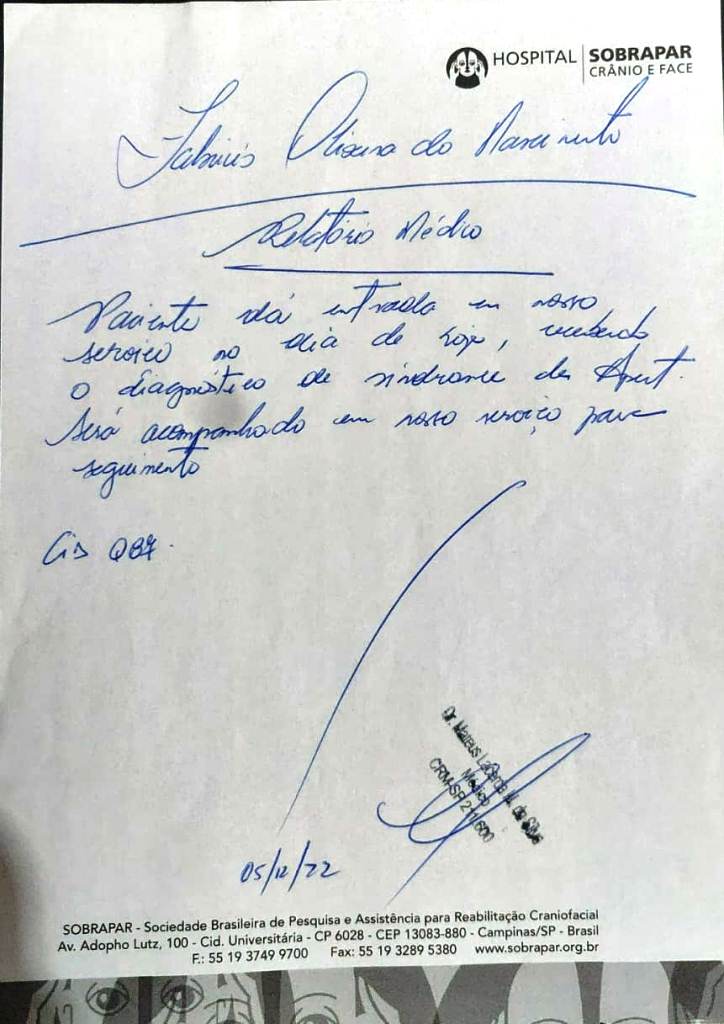 HOSPITAL SOBRAPAR
CRÂNIO E FACE
Fabricio Oliveira do Nascimento
Relatório Médico
Paciente dá entrada em nosso
serviço no dia de hoje, recebendo
o diagnóstico de síndrome de Apert.
Será acompanhado em nosso serviço para
seguimento
CID Q87.
Dr. Mateus da Silva
Médico
CRM-SP 211.600
05/12/22
SOBRAPAR - Sociedade Brasileira de Pesquisa e Assistência para Reabilitação Craniofacial
Av. Adopho Lutz, 100 - Cid. Universitária - CP 6028 - CEP 13083-880 - Campinas/SP - Brasil
F.: 55 19 3749 9700 Fax: 55 19 3289 5380 www.sobrapar.org.br